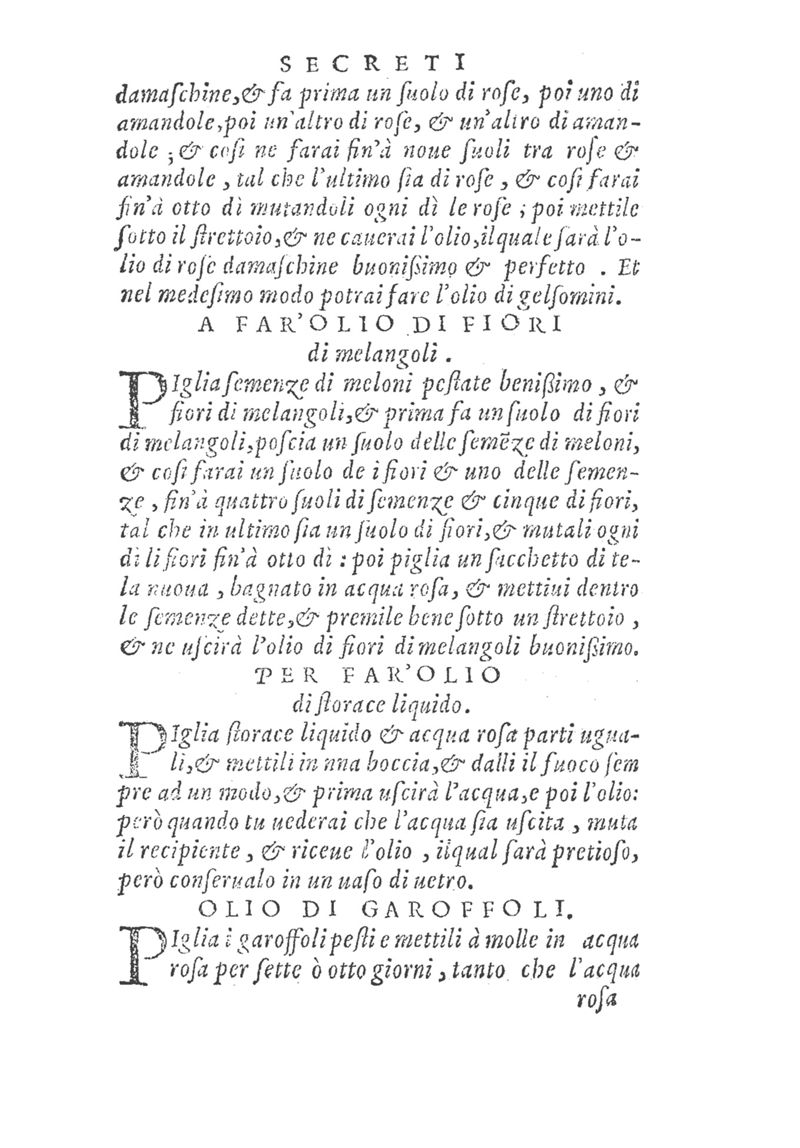 SECRETI
damaſchine,& fa prima un ſuolo di roſe, poi uno di
amandole,poi un'altro di roſe, & un'altro di aman-
dole ; & coſi ne farai fin'à noue ſuoli tra roſe &
amandole , tal che l'ultimo ſia di roſe , & coſi farai
fin'à otto dì mutandoli ogni dì le roſe ; poi mettile
ſotto il ſtrettoio,& ne cauerai l'olio,ilquale ſarà l'o-
lio di roſe damaſchine buonißimo & perfetto . Et
nel medeſimo modo potrai fare l'olio di gelſomini.
A FAR'OLIO DI FIORI
di melangoli .
PIglia ſemenze di meloni peſtate benißimo , &
fiori di melangoli,& prima fa un ſuolo di fiori
di melangoli,poſcia un ſuolo delle ſemẽze di meloni,
& coſi farai un ſuolo de i fiori & uno delle ſemen-
ze , fin'à quattro ſuoli di ſemenze & cinque di fiori,
tal che in ultimo ſia un ſuolo di fiori,& mutali ogni
dì li fiori fin'à otto dì : poi piglia un ſacchetto di te-
la nuoua , bagnato in acqua roſa, & mettiui dentro
le ſemenze dette,& premile bene ſotto un ſtrettoio ,
& ne uſcirà l'olio di fiori di melangoli buonißimo.
PER FAR'OLIO
di ſtorace liquido.
PIglia ſtorace liquido & acqua roſa parti ugua-
li,& mettili in una boccia,& dalli il fuoco ſem
pre ad un modo,& prima uſcirà l'acqua,e poi l'olio:
però quando tu uederai che l'acqua ſia uſcita , muta
il recipiente , & riceue l'olio , ilqual ſarà pretioſo,
però conſerualo in un uaſo di uetro.
OLIO DI GAROFFOLI.
PIglia i garoffoli peſti e mettili à molle in acqua
roſa per ſette ò otto giorni , tanto che l'acqua
roſa